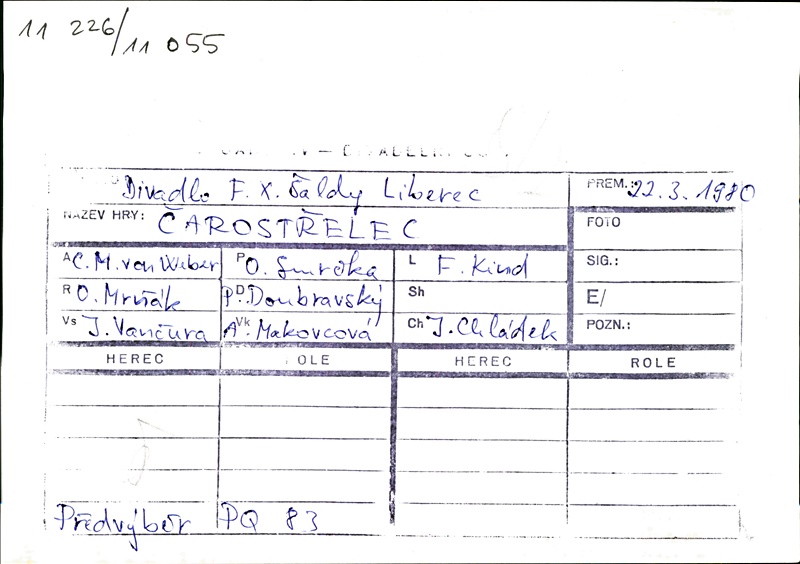 11 226/11 055
Divadlo F. X. Šaldy Liberec PREM.: 22. 3. 1980
NÁZEV HRY: ČAROSTŘELEC FOTO
A C. M. von Weber P O. Smrčka L F. Kind SIG.:
R O. Mrňák D P. Doubravský Sh E/
Vs J. Vančura Vk A. Makovcová Ch J. Chládek POZN.:
HEREC OLE HEREC ROLE
Předvýběr PQ 83